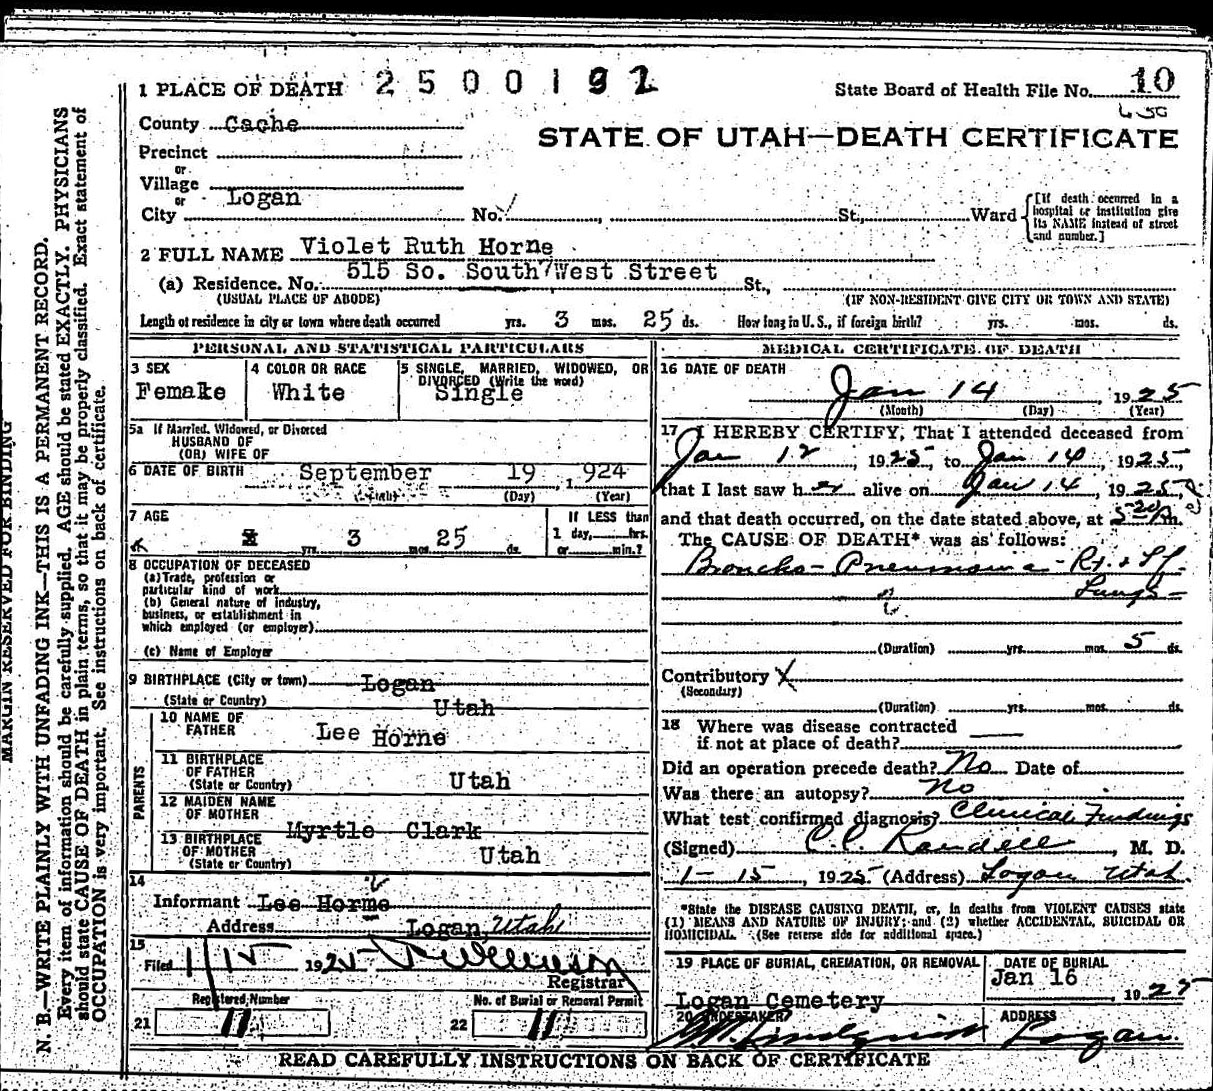 1 PLACE OF DEATH 2500192 State Board of Health File No. 10
450
County Cache
STATE OF UTAH—DEATH CERTIFICATE
Precinct
or
Village
or
City Logan No. St., Ward
[If death occurred in a hospital or institution give its NAME instead of street and number.]
2 FULL NAME Violet Ruth Horne
(a) Residence. No. 515 So. South West Street St.,
(USUAL PLACE OF ABODE) (IF NON-RESIDENT GIVE CITY OR TOWN AND STATE)
Length of residence in city or town where death occurred yrs. 3 mos. 25 ds. How long in U. S., if foreign birth? yrs. mos. ds.
PERSONAL AND STATISTICAL PARTICULARS
3 SEX
Femake
4 COLOR OR RACE
White
5 SINGLE, MARRIED, WIDOWED, OR DIVORCED (Write the word)
Single
5a If Married, Widowed, or Divorced
HUSBAND OF
(OR) WIFE OF
6 DATE OF BIRTH September 19 1924
(Month) (Day) (Year)
7 AGE
yrs. 3 mos. 25 ds.
If LESS than
1 day, hrs.
or min.?
8 OCCUPATION OF DECEASED
(a) Trade, profession or
particular kind of work
(b) General nature of industry,
business, or establishment in
which employed (or employer)
(c) Name of Employer
9 BIRTHPLACE (City or town) Logan
(State or Country) Utah
PARENTS
10 NAME OF
FATHER Lee Horne
11 BIRTHPLACE
OF FATHER
(State or Country) Utah
12 MAIDEN NAME
OF MOTHER Myrtle Clark
13 BIRTHPLACE
OF MOTHER
(State or Country) Utah
14
Informant Lee Horne
Address Logan, Utah
15
Filed 1/15 1925
Registrar
Registered Number
21 11
No. of Burial or Removal Permit
22 11
MEDICAL CERTIFICATE OF DEATH
16 DATE OF DEATH
Jan 14 1925
(Month) (Day) (Year)
17 I HEREBY CERTIFY, That I attended deceased from
Jan 12, 1925, to Jan 14, 1925,
that I last saw her alive on Jan 14, 1925,
and that death occurred, on the date stated above, at 5 20 Pm.
The CAUSE OF DEATH* was as follows:
Broncho-Pneumonia - Rt. & Lf.
Lungs-
(Duration) yrs. mos. 5 ds.
Contributory X
(Secondary)
(Duration) yrs. mos. ds.
18 Where was disease contracted
if not at place of death?
Did an operation precede death? No Date of
Was there an autopsy? No
What test confirmed diagnosis? Clinical Findings
(Signed) C.C. Randall, M. D.
1-15, 1925 (Address) Logan Utah.
*State the DISEASE CAUSING DEATH, or, in deaths from VIOLENT CAUSES state
(1) MEANS AND NATURE OF INJURY; and (2) whether ACCIDENTAL, SUICIDAL OR
HOMICIDAL. (See reverse side for additional space.)
19 PLACE OF BURIAL, CREMATION, OR REMOVAL
Logan Cemetery
DATE OF BURIAL
Jan 16 1925
20 UNDERTAKER
Lindquist
ADDRESS
Logan.
READ CAREFULLY INSTRUCTIONS ON BACK OF CERTIFICATE
MARGIN RESERVED FOR BINDING
N. B.—WRITE PLAINLY WITH UNFADING INK—THIS IS A PERMANENT RECORD.
Every item of information should be carefully supplied. AGE should be stated EXACTLY. PHYSICIANS
should state CAUSE OF DEATH in plain terms, so that it may be properly classified. Exact statement of
OCCUPATION is very important. See instructions on back of certificate.